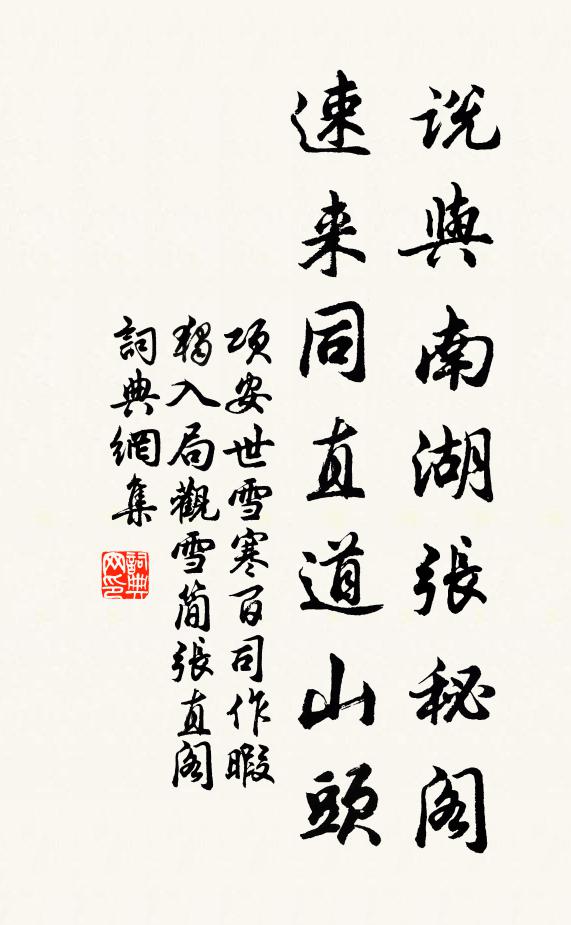 說與南湖張秘閣
速来同直道山頭
項安世雪寒百司作暇
獨入局觀雪簡張直閣
詞典網集
詞典網印